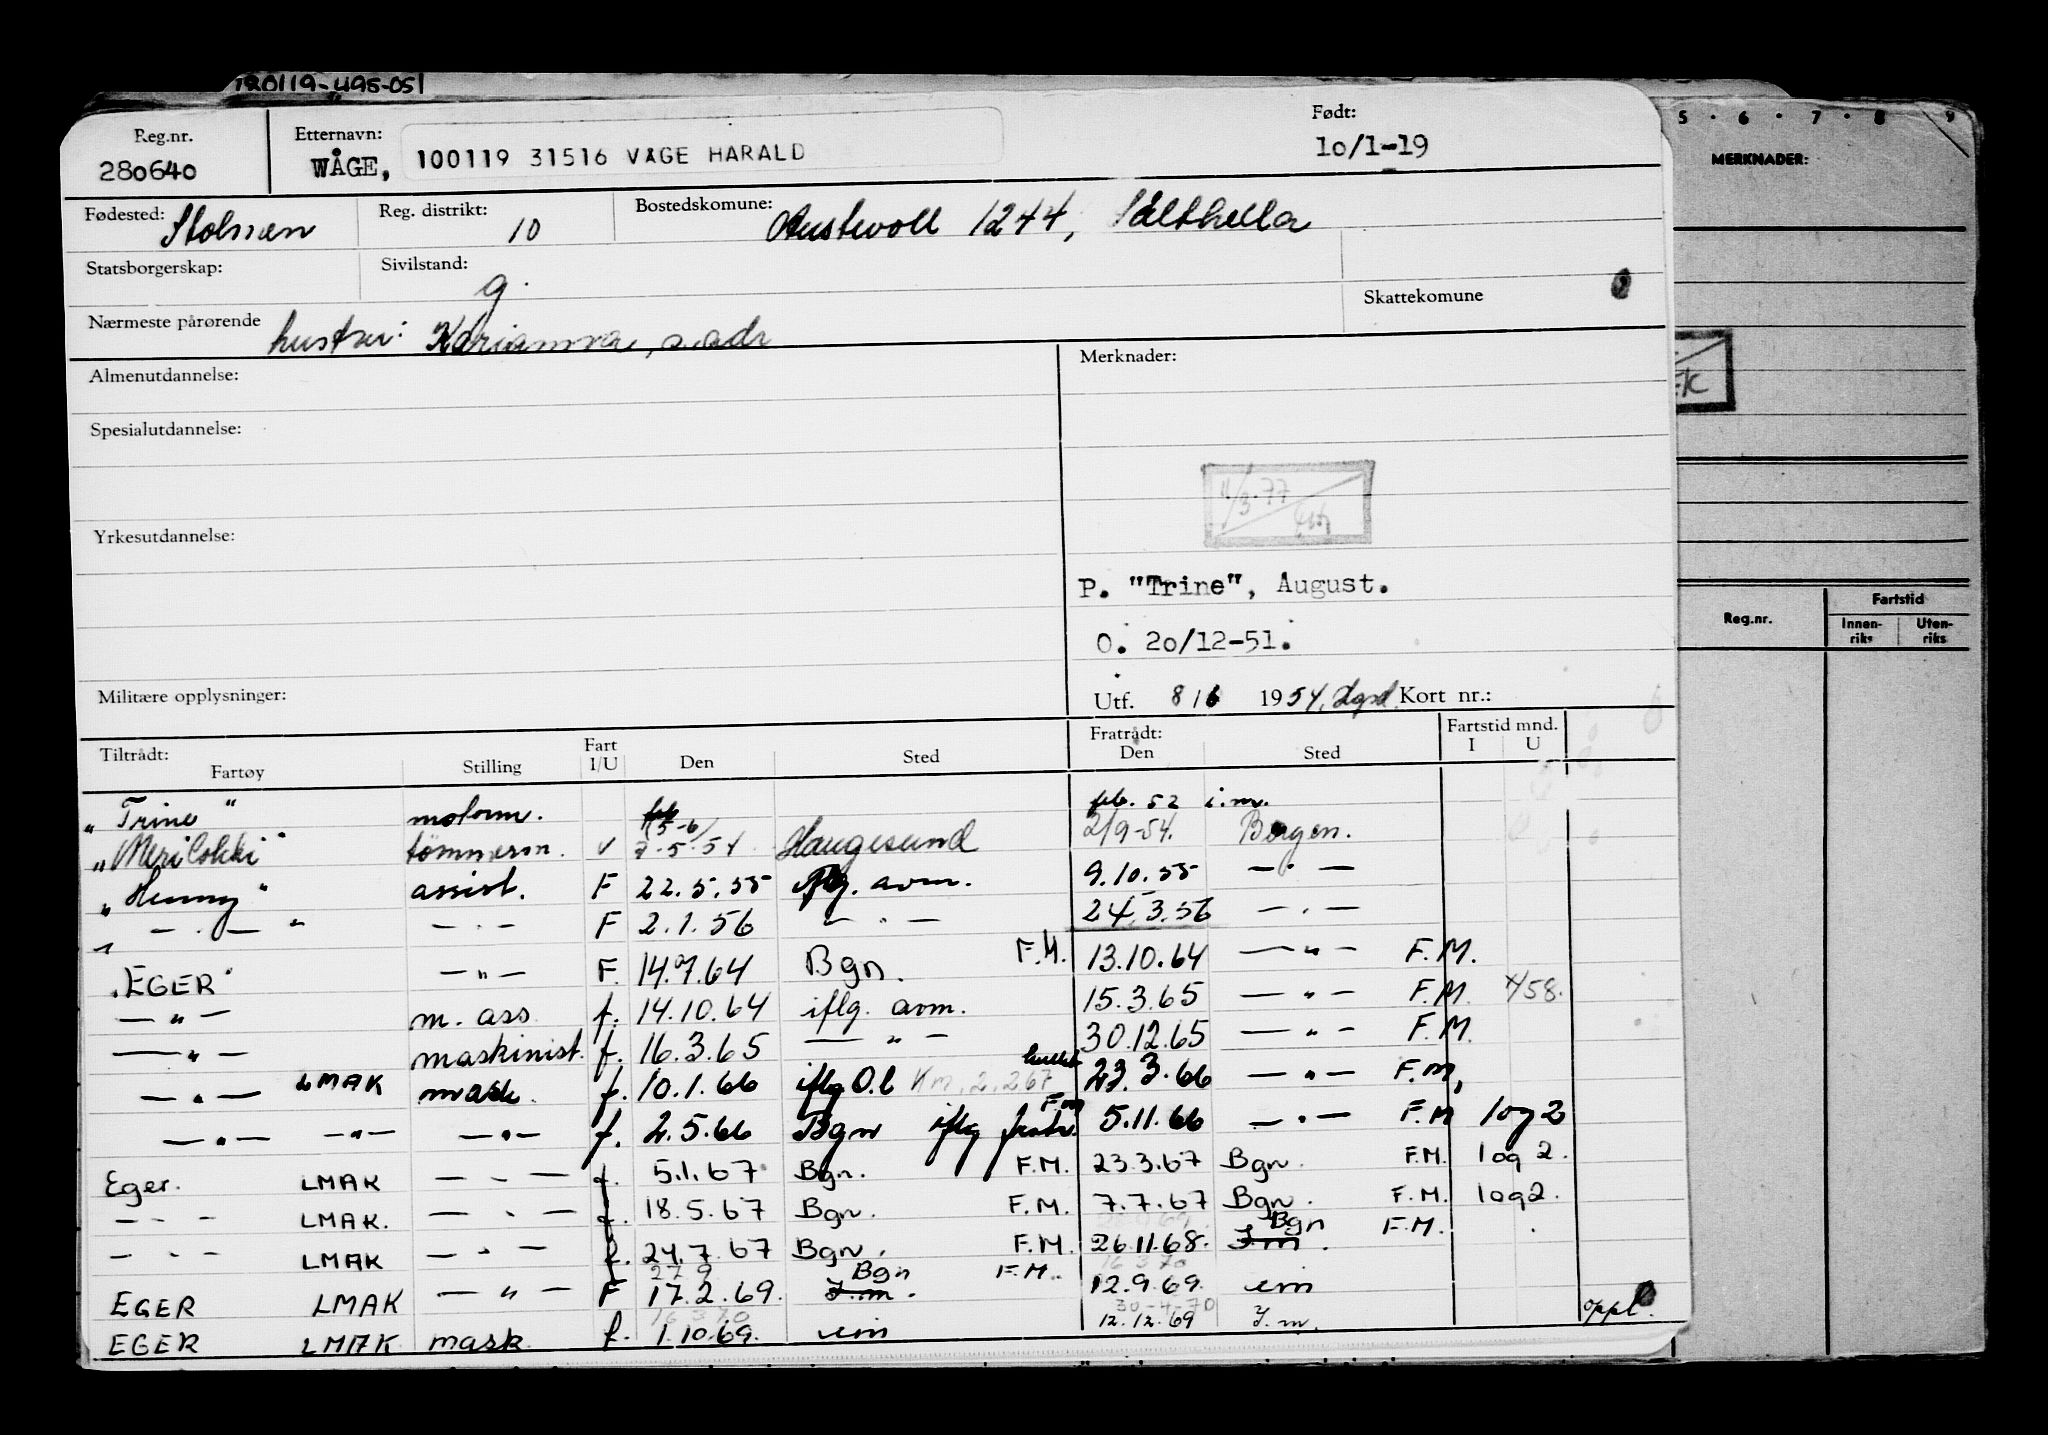 120119-495-051
Reg.nr. Etternavn: Født:
280640 WÅGE, 100119 31516 VÅGE HARALD 10/1-19
Fødested: Stolmen Reg. distrikt: 10 Bostedskomune: Austevoll 1244, Salthella
Statsborgerskap: Sivilstand: g. Skattekomune
Nærmeste pårørende hustru: Marianna, s. adr
Almenutdannelse: Merknader:
Spesialutdannelse:
4/3.77
Yrkesutdannelse:
P. "Trine", August.
O. 20/12-51.
Militære opplysninger: Utf. 8/6 1954, Hgsd. Kort nr.:
Tiltrådt: Fart Fratrådt: Fartstid mnd.
Fartøy Stilling I/U Den Sted Den Sted I U
"Trine" motorm. feb. 52 i.m.
"Merilokki" tømmerm. v (5-6) 7.5.54 Haugesund 2/9-54. Bergen.
"Henny" assist. F 22.5.55 iflg. avm. 9.10.55 — " —
— " — — " — F 2.1.56 — " — 24.3.56 — " —
"EGER" — " — F. 14.7.64 Bgn. F.M. 13.10.64 — " — F.M.
— " — m. ass f. 14.10.64 iflg. avm. 15.3.65 — " — F.M. 4/58.
— " — maskinist. f. 16.3.65 — " — 30.12.65 — " — F.M.
— " — LMAK mask. f. 10.1.66 iflg O.l 23.3.66 — " — F.M,
— " — — " — — " — f. 2.5.66 Bgn iflg F.M 5.11.66 — " — F.M 1 og 2
Eger. LMAK — " — f. 5.1.67 Bgn. F.M. 23.3.67 Bgn. F.M. 1 og 2.
— " — LMAK. — " — f. 18.5.67 Bgn. F.M. 7.7.67 Bgn. F.M. 1 og 2.
— " — LMAK — " — f. 24.7.67 Bgn. F.M. 26.11.68. I.m. Bgn F.M.
EGER LMAK — " — F 17.2.69. I.m. Bgn F.M. 12.9.69. eim
16 3 70 30-4-70
EGER LMAK mask. f. 1.10.69. eim 12.12.69 I.m. oppl.
5 . 6 . 7 . 8 9
MERKNADER:
Reg.nr. Fartstid
Innen-riks Uten-riks